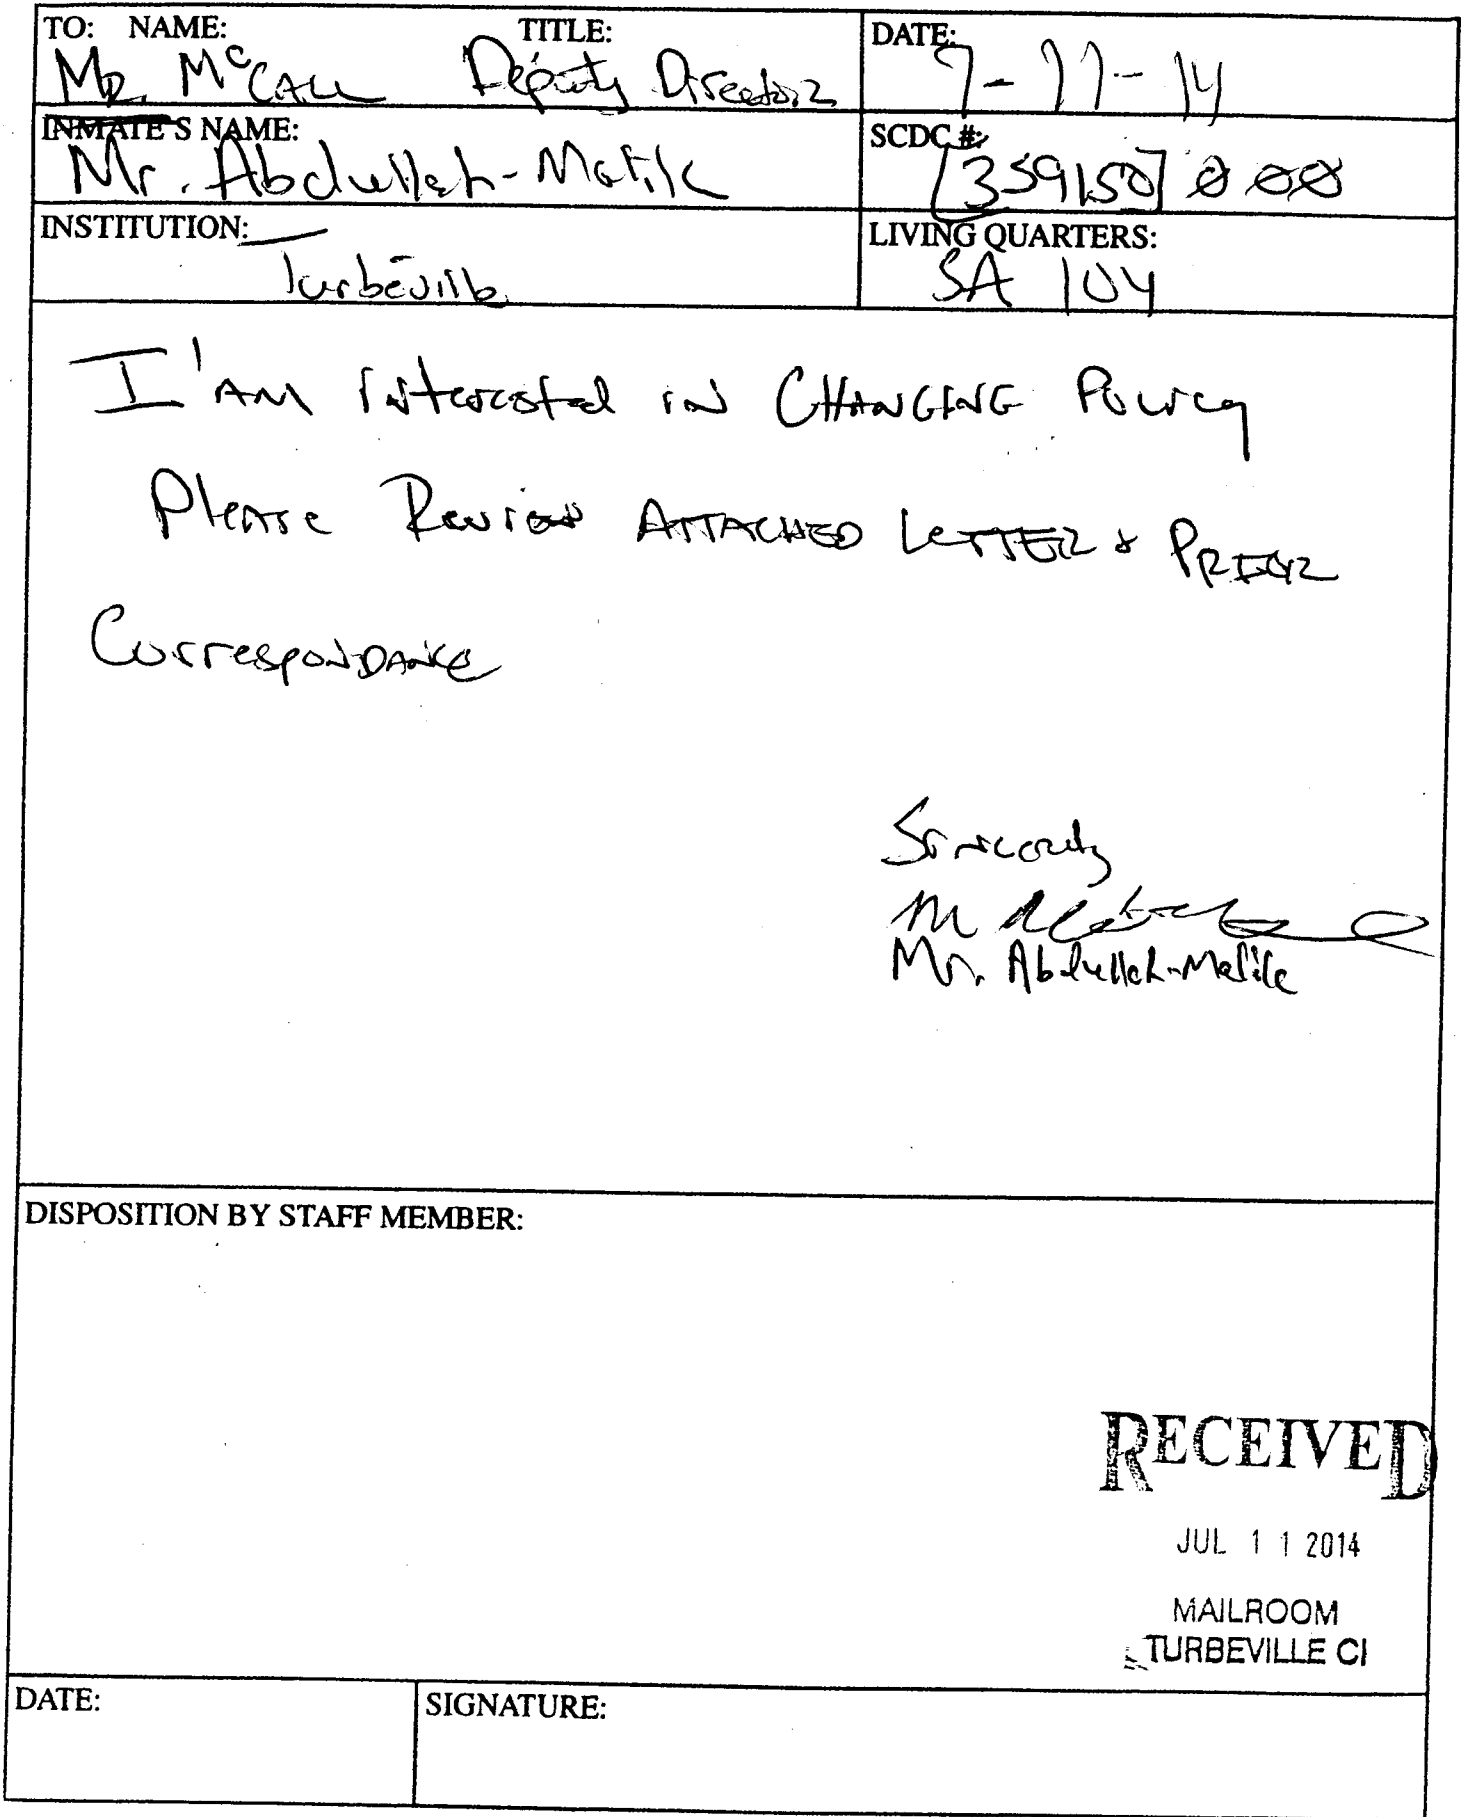 TO: NAME: TITLE: DATE:
Mr. McCall Deputy Director 7-11-14
INMATE'S NAME: SCDC #:
Mr. Abdullah-Malik [359150]
INSTITUTION: LIVING QUARTERS:
Turbeville SA 104
I'AM Interested in CHANGING Policy
Please Review ATTACHED LETTER & PRIOR
CorrespondANCE
Sincerely
Mr. Abdullah-Malik
DISPOSITION BY STAFF MEMBER:
RECEIVED
JUL 11 2014
MAILROOM
TURBEVILLE CI
DATE: SIGNATURE: